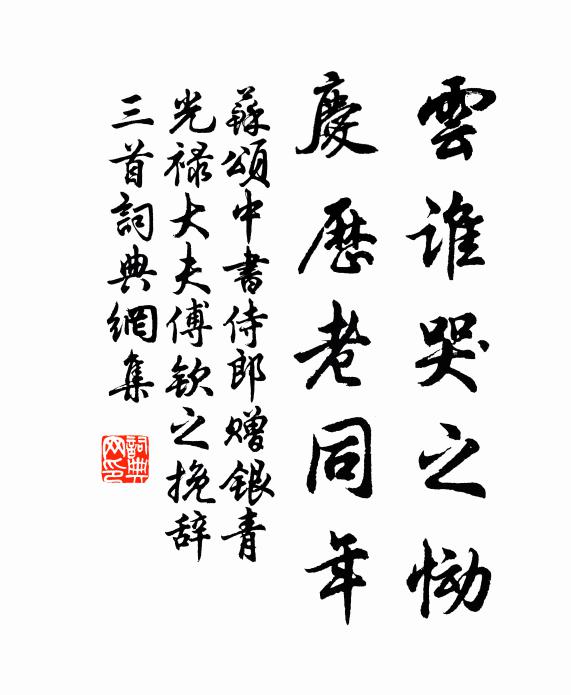 雲谁哭之恸
慶歷老同年
蘇頌中書侍郎赠银青
光禄大夫傅欽之挽辞
三首詞典網集
詞典网印